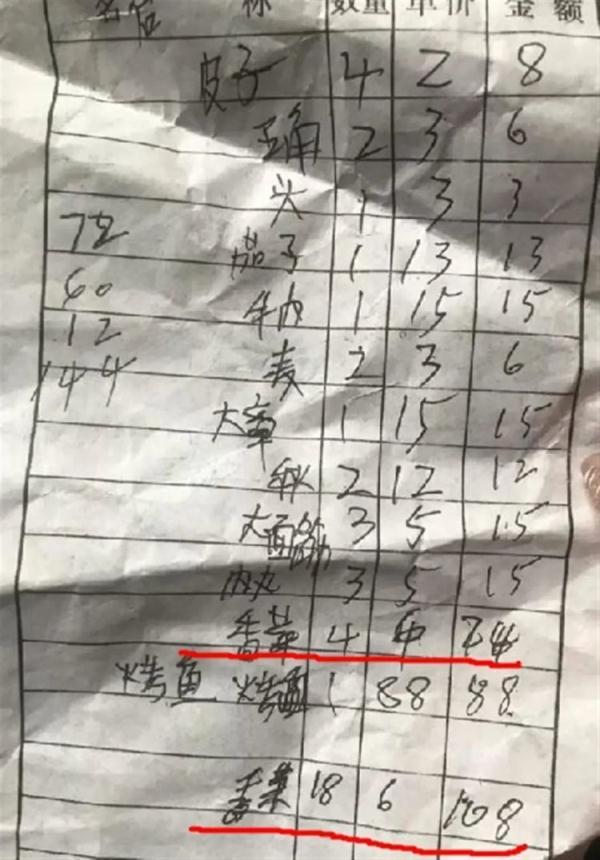 名 称 数量 单价 金额
皮子 4 2 8
玉角 2 3 6
头 1 3 3
72
茄子 1 13 13
60
牛肉 1 15 15
12
麦 2 3 6
144
大 1 15 15
2 12 12
大面筋 3 5 15
肉丸 3 5 15
香菜 4
烤鱼 烤鱼 1 88 88
香菜 18 6 108